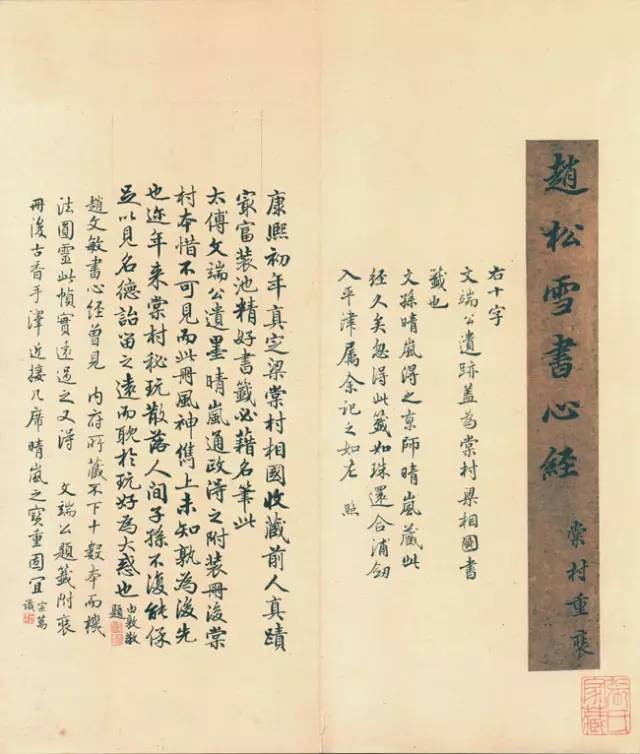 趙松雪書心經
棠村重裝
右十字
文端公遺跡蓋為棠村梁相國書
籤也
文孫晴嵐得之京師晴嵐藏此
經久矣忽得此籤如珠還合浦劒
入平津屬余記之如左 照
康熙初年真定梁棠村相國收藏前人真蹟
冣富裝池精好書籤必藉名筆此
太傅文端公遺墨晴嵐通政得之附裝冊後棠
村本惜不可見而此冊風神儁上未知孰為後先
也迩年来棠村秘玩散落人間子孫不復能保
足以見名德詒留之遠而耽於玩好為大惑也
由敦敬
題
趙文敏書心經曾見 内府所藏不下十數本而機
法圓靈此幀實遠過之又得 文端公題籤附裝
冊後古香手澤近接几席晴嵐之寶重固宜
宗萬
識